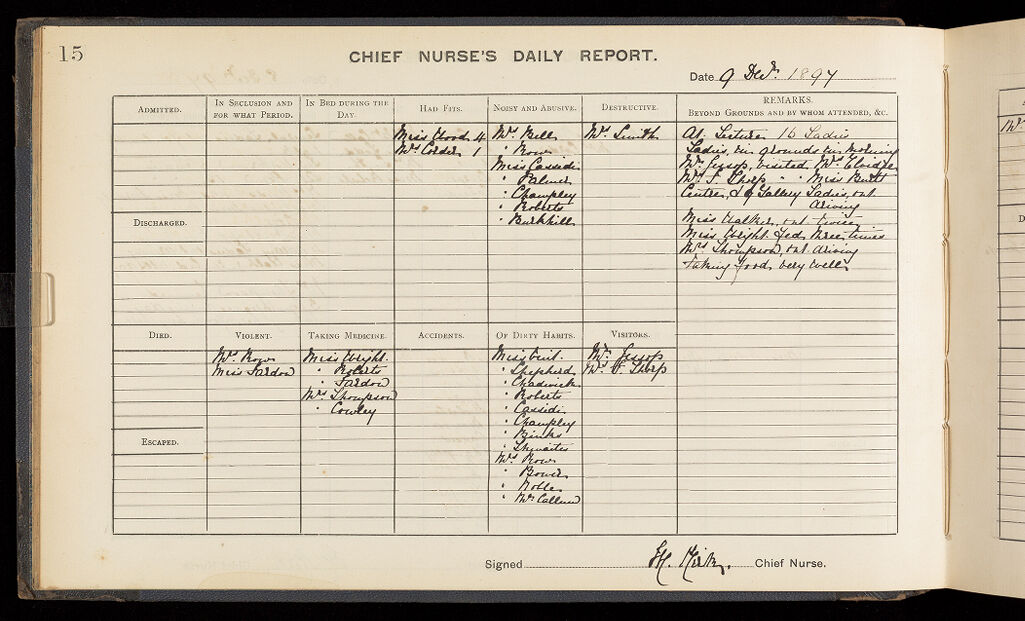 15
CHIEF NURSE'S DAILY REPORT.
Date 9 Decr. 1897
ADMITTED.
IN SECLUSION AND FOR WHAT PERIOD.
IN BED DURING THE DAY.
HAD FITS.
Miss Wood 4
Mrs Corder 1
NOISY AND ABUSIVE.
Mrs Bell
" Row
Miss Cassidi
" Palmer
" Champley
" Roberts
" Burkhill
DESTRUCTIVE.
Mrs Smith
REMARKS.
BEYOND GROUNDS AND BY WHOM ATTENDED, &C.
At Lecture 16 Ladies
Ladies in grounds in morning
Mr Jessop, visited Mrs Elvidge
Mr J Thorp " " Miss Burtt
Centre, & Gallery Ladies, out
driving
Miss Walker, out twice
Miss Wright fed three times
Mrs Thompson, out driving
taking food very well
DISCHARGED.
DIED.
VIOLENT.
Mrs Row
Miss Fardon
TAKING MEDICINE.
Miss Wright
" Roberts
" Fardon
Mrs Thompson
" Cowley
ACCIDENTS.
OF DIRTY HABITS.
Miss
" Shepherd
" Chadwick
" Roberts
" Cassidi
" Champley
" Binks
" Thwaites
Mrs Row
" Bower
" Noble
" McCallum
VISITORS.
Mr Jessop
Thorp
ESCAPED.
Signed H. Kirby. Chief Nurse.